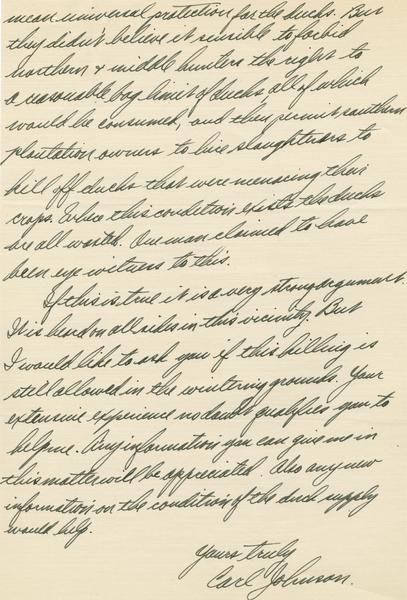 mean universal protection for the ducks. But
they didn't believe it sensible to forbid
northern & middle hunters the right to
a reasonable bag limit of ducks all of which
would be consumed, and then permit southern
plantation owners to hire slaughterers to
kill off ducks that were menacing their
crops. Where this condition exists the ducks
are all wasted. One man claimed to have
been eye witness to this.
If this is true it is a very strong argument.
It is heard on all sides in this vicinity. But
I would like to ask you if this killing is
still allowed in the wintering grounds. Your
extensive experience no doubt qualifies you to
help me. Any information you can give me in
this matter will be appreciated. Also any new
information on the condition of the duck supply
would help.
Yours truly
Carl Johnson.